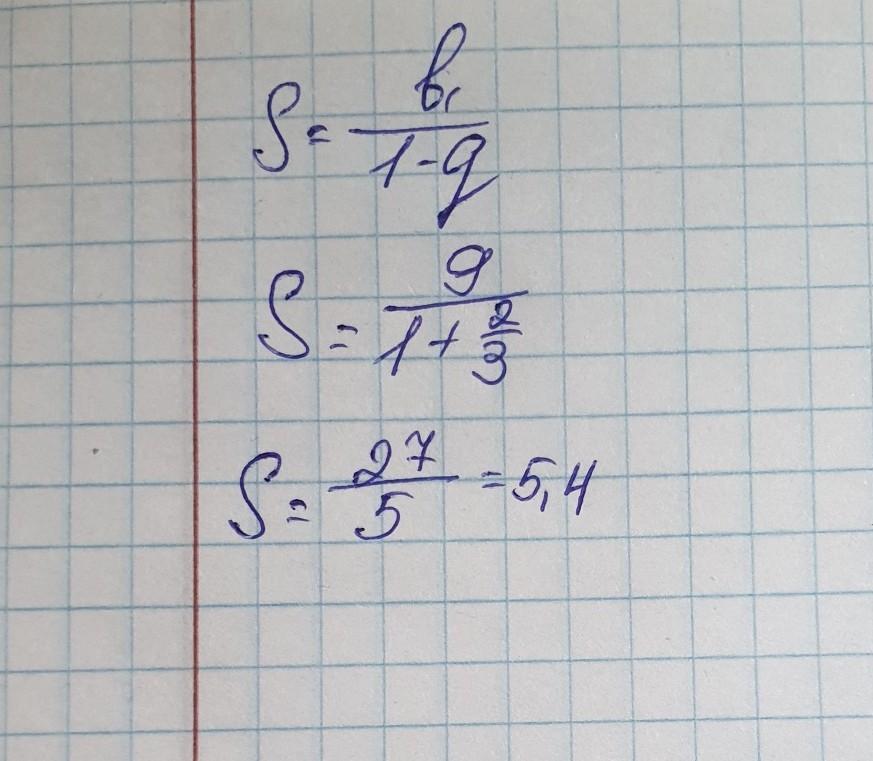 S = b₁/(1-q)
S = 9/(1 + 2/3)
S = 27/5 = 5,4